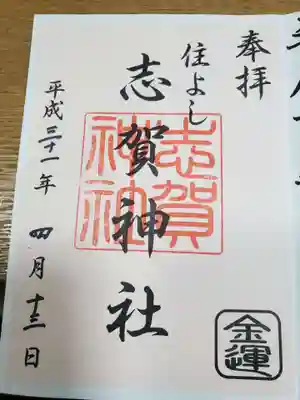 奉拝
住よし
志賀神社
志賀
神社
平成三十一年四月十三日
金運